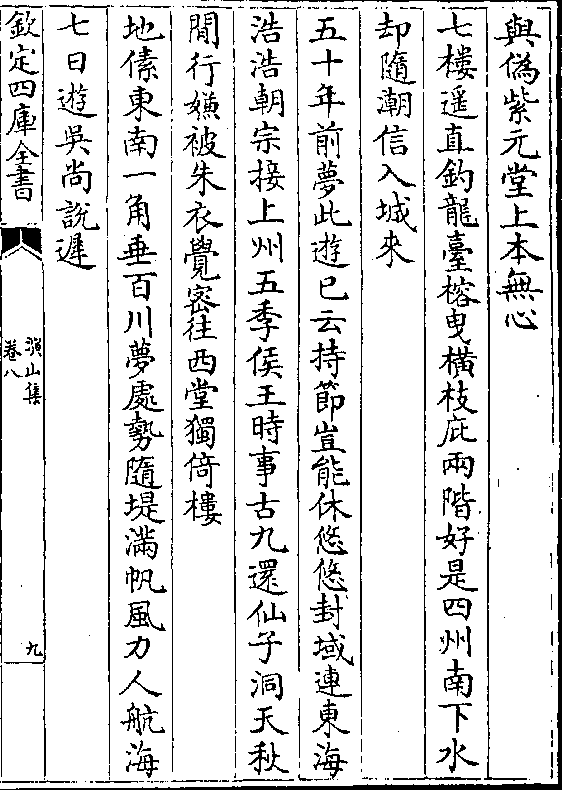 與偽紫元堂上本無心
七樓遥直釣龍臺榕曳横枝庇兩階好是四州南下水
却隨潮信入城來
五十年前夢此遊已云持節豈能休悠悠封域連東海
浩浩朝宗接上州五季侯王時事古九還仙子洞天秋
閒行嫌被朱衣覺密往西堂獨倚樓
地傃東南一角垂百川夢處勢隨堤滿帆風力人航海
七日遊吳尚說遲
欽定四庫全書
演山集
卷八
九